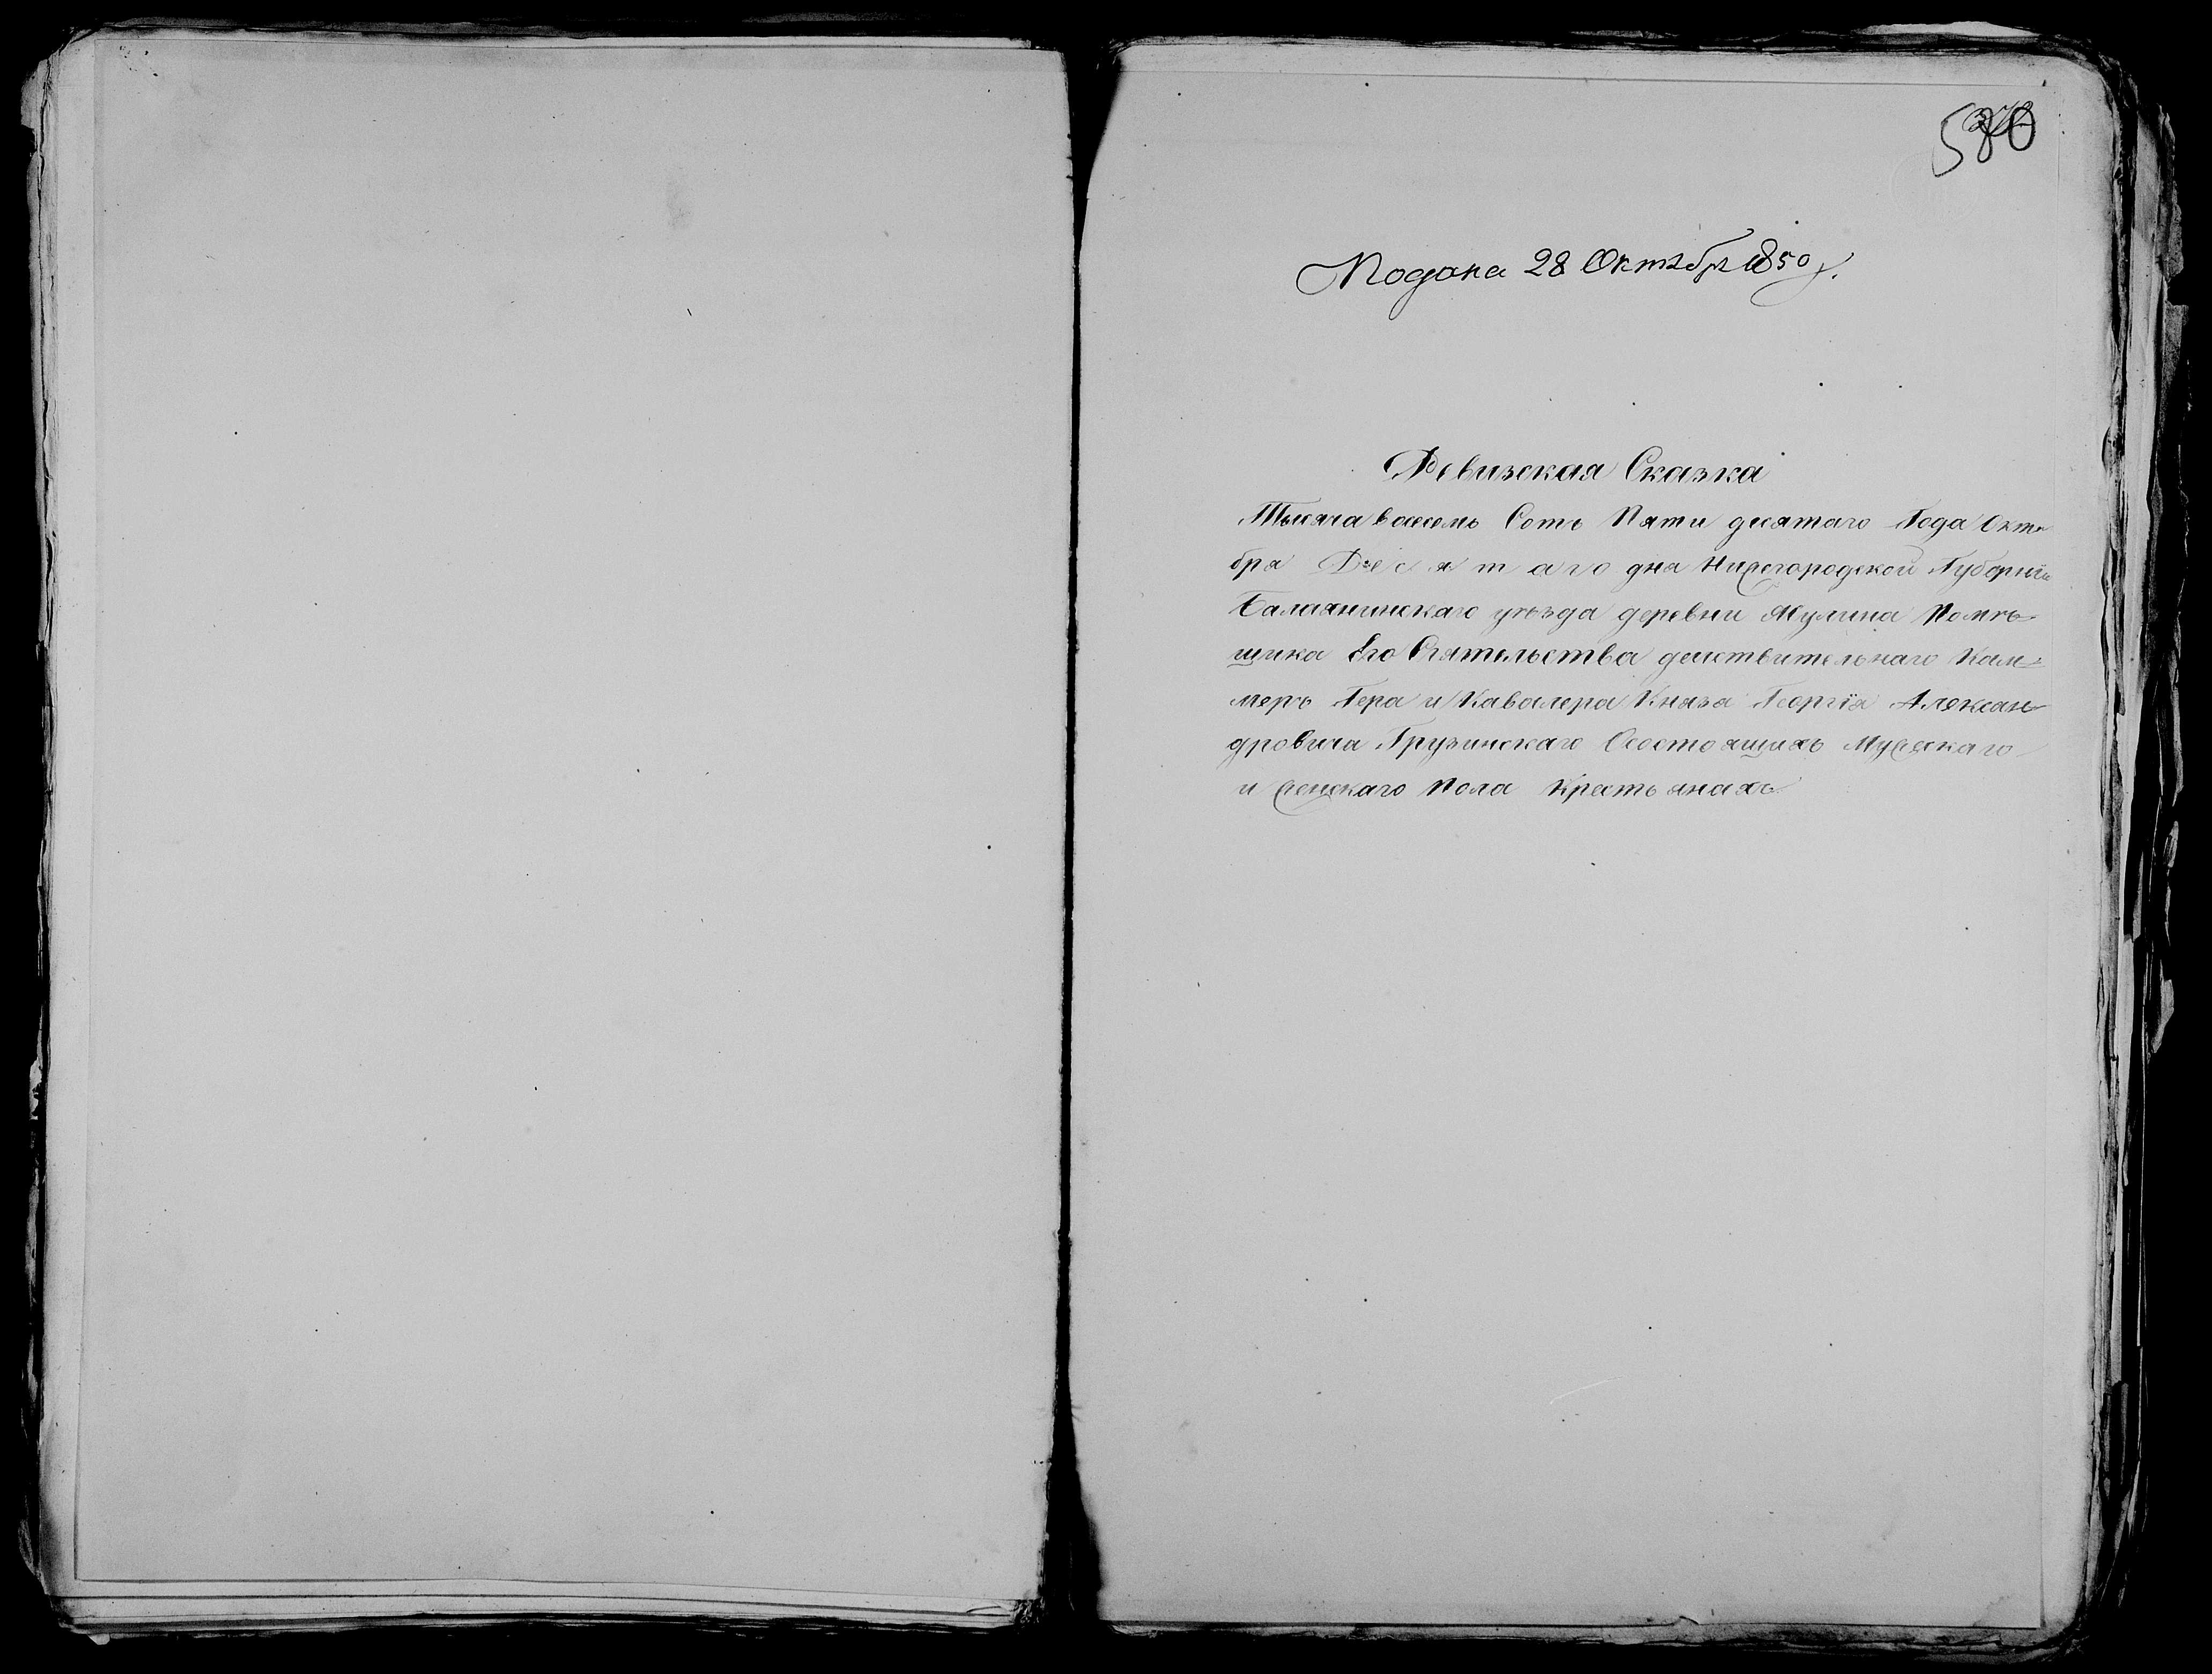 580
Подана 28 Октября 1850 г.
Ревизская Сказка
Тысяча восемь Сотъ Пяти десятаго Года Октя
бря Десятаго дня Нижегородской Губернiи
Балахнинскаго уѣзда деревни Мулина Помѣ
щика Его Сіятельства действительнаго Кам=
меръ Гера и Кавалера Князя Георгiя Алексан
дровича Грузинскаго О состоящихъ Мужескаго
и женскаго Пола Крестьянахъ